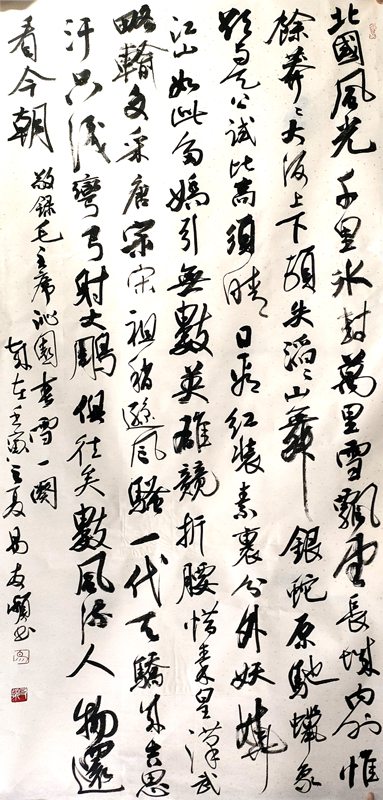 北國風光千里冰封萬里雪飄望長城內外惟
餘莽々大河上下頓失滔々山舞銀蛇原馳蠟象
欲与天公試比高須晴日看红装素裹分外妖嬈
江山如此多嬌引無數英雄競折腰惜秦皇漢武
略輸文采唐宗宋祖稍遜風騷一代天驕成吉思
汗只識彎弓射大鵰俱往矣數風流人物還
看今朝
敬録毛主席沁園春雪一闋
歲在壬寅立夏易友書